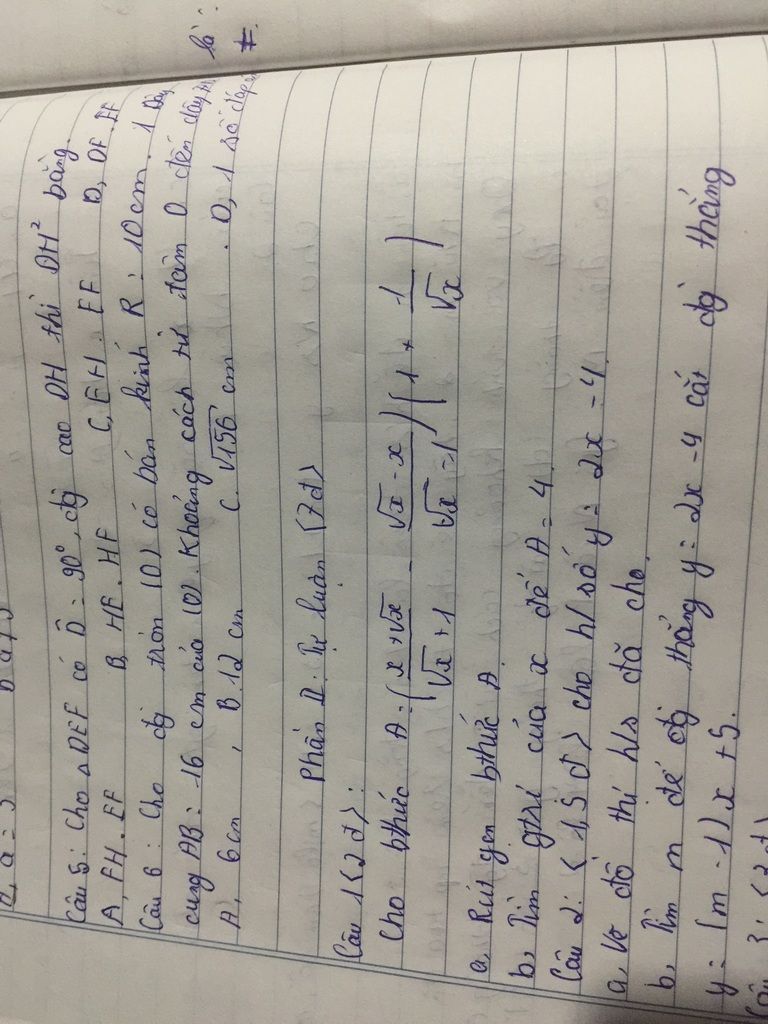 là:
≠.
a = 3
Câu 5: Cho △DEF có D̂ = 90°, đg cao DH thì DH² bằng.
A, FH.EF B, HE.HF C, EH.EF D, DF.EF
Câu 6: Cho đg tròn (O) có bán kính R: 10cm. 1 dây
cung AB = 16 cm của (O). Khoảng cách từ tâm O đến dây
A, 6cm, B. 12 cm C. √156 cm . D, 1 số đáp
Phần II: Tự luận (7đ)
Câu 1 <2đ>:
Cho bthức A = (x+√x / √x+1 - √x-x / √x-1) (1 + 1/√x)
a, Rút gọn bthức A.
b, Tìm gtrị của x để A = 4.
Câu 2: <1,5đ> cho h/số y = 2x - 4.
a, Vẽ đồ thị h/s đã cho.
b, Tìm m để đg thẳng y = 2x - 4 cắt đg thẳng
y = (m - 1)x + 5.
Câu 3: <3đ>